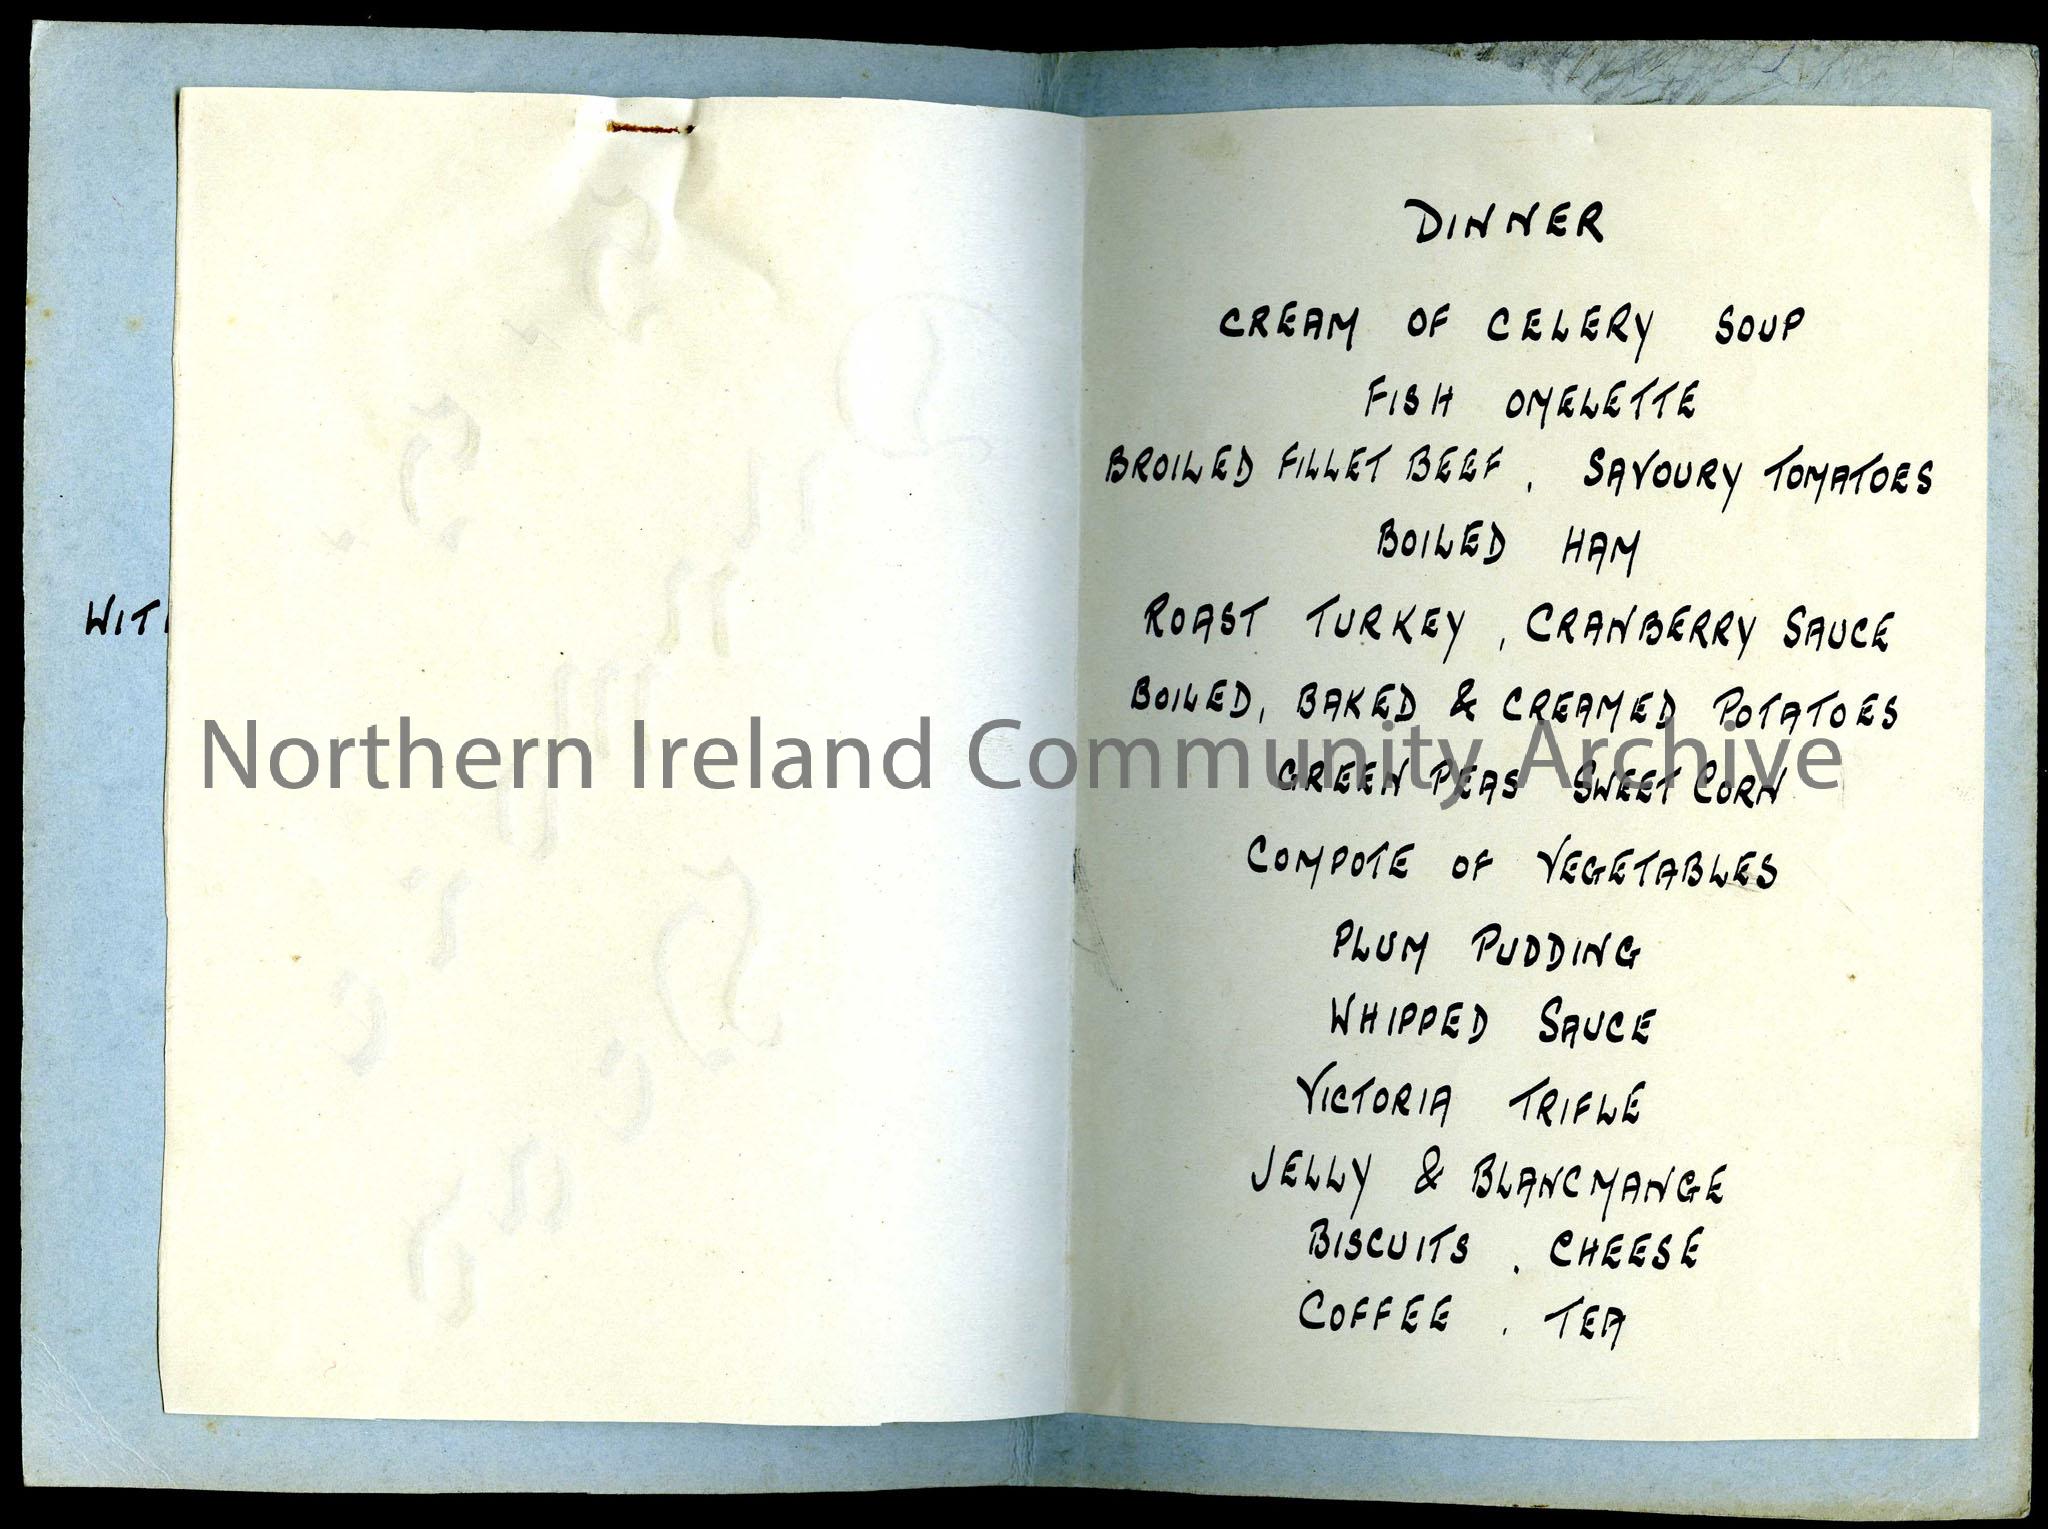 DINNER
CREAM OF CELERY SOUP
FISH OMELETTE
BROILED FILLET BEEF. SAVOURY TOMATOES
BOILED HAM
WIT
ROAST TURKEY, CRANBERRY SAUCE
BOILED, BAKED & CREAMED POTATOES
Northern Ireland Community Archive
GREEN PEAS SWEET CORN
COMPOTE OF VEGETABLES
PLUM PUDDING
WHIPPED SAUCE
VICTORIA TRIFLE
JELLY & BLANCMANGE
BISCUITS. CHEESE
COFFEE. TEA